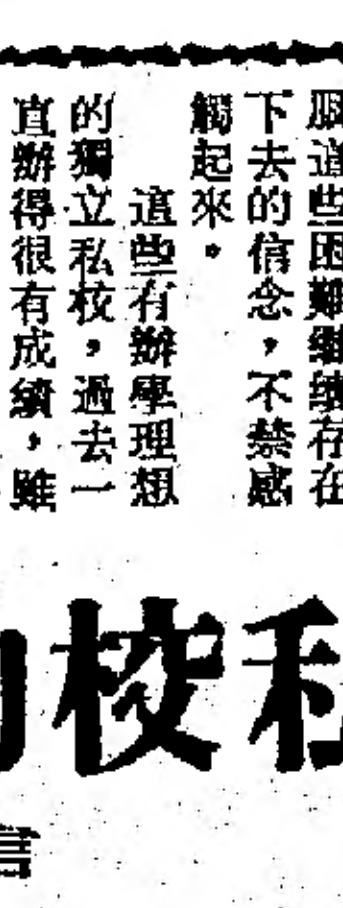 服這些困難繼續存在
下去的信念，不禁感
觸起來。
這些有辦學理想
的獨立私校，過去一
直辦得很有成績，雖
私校
言